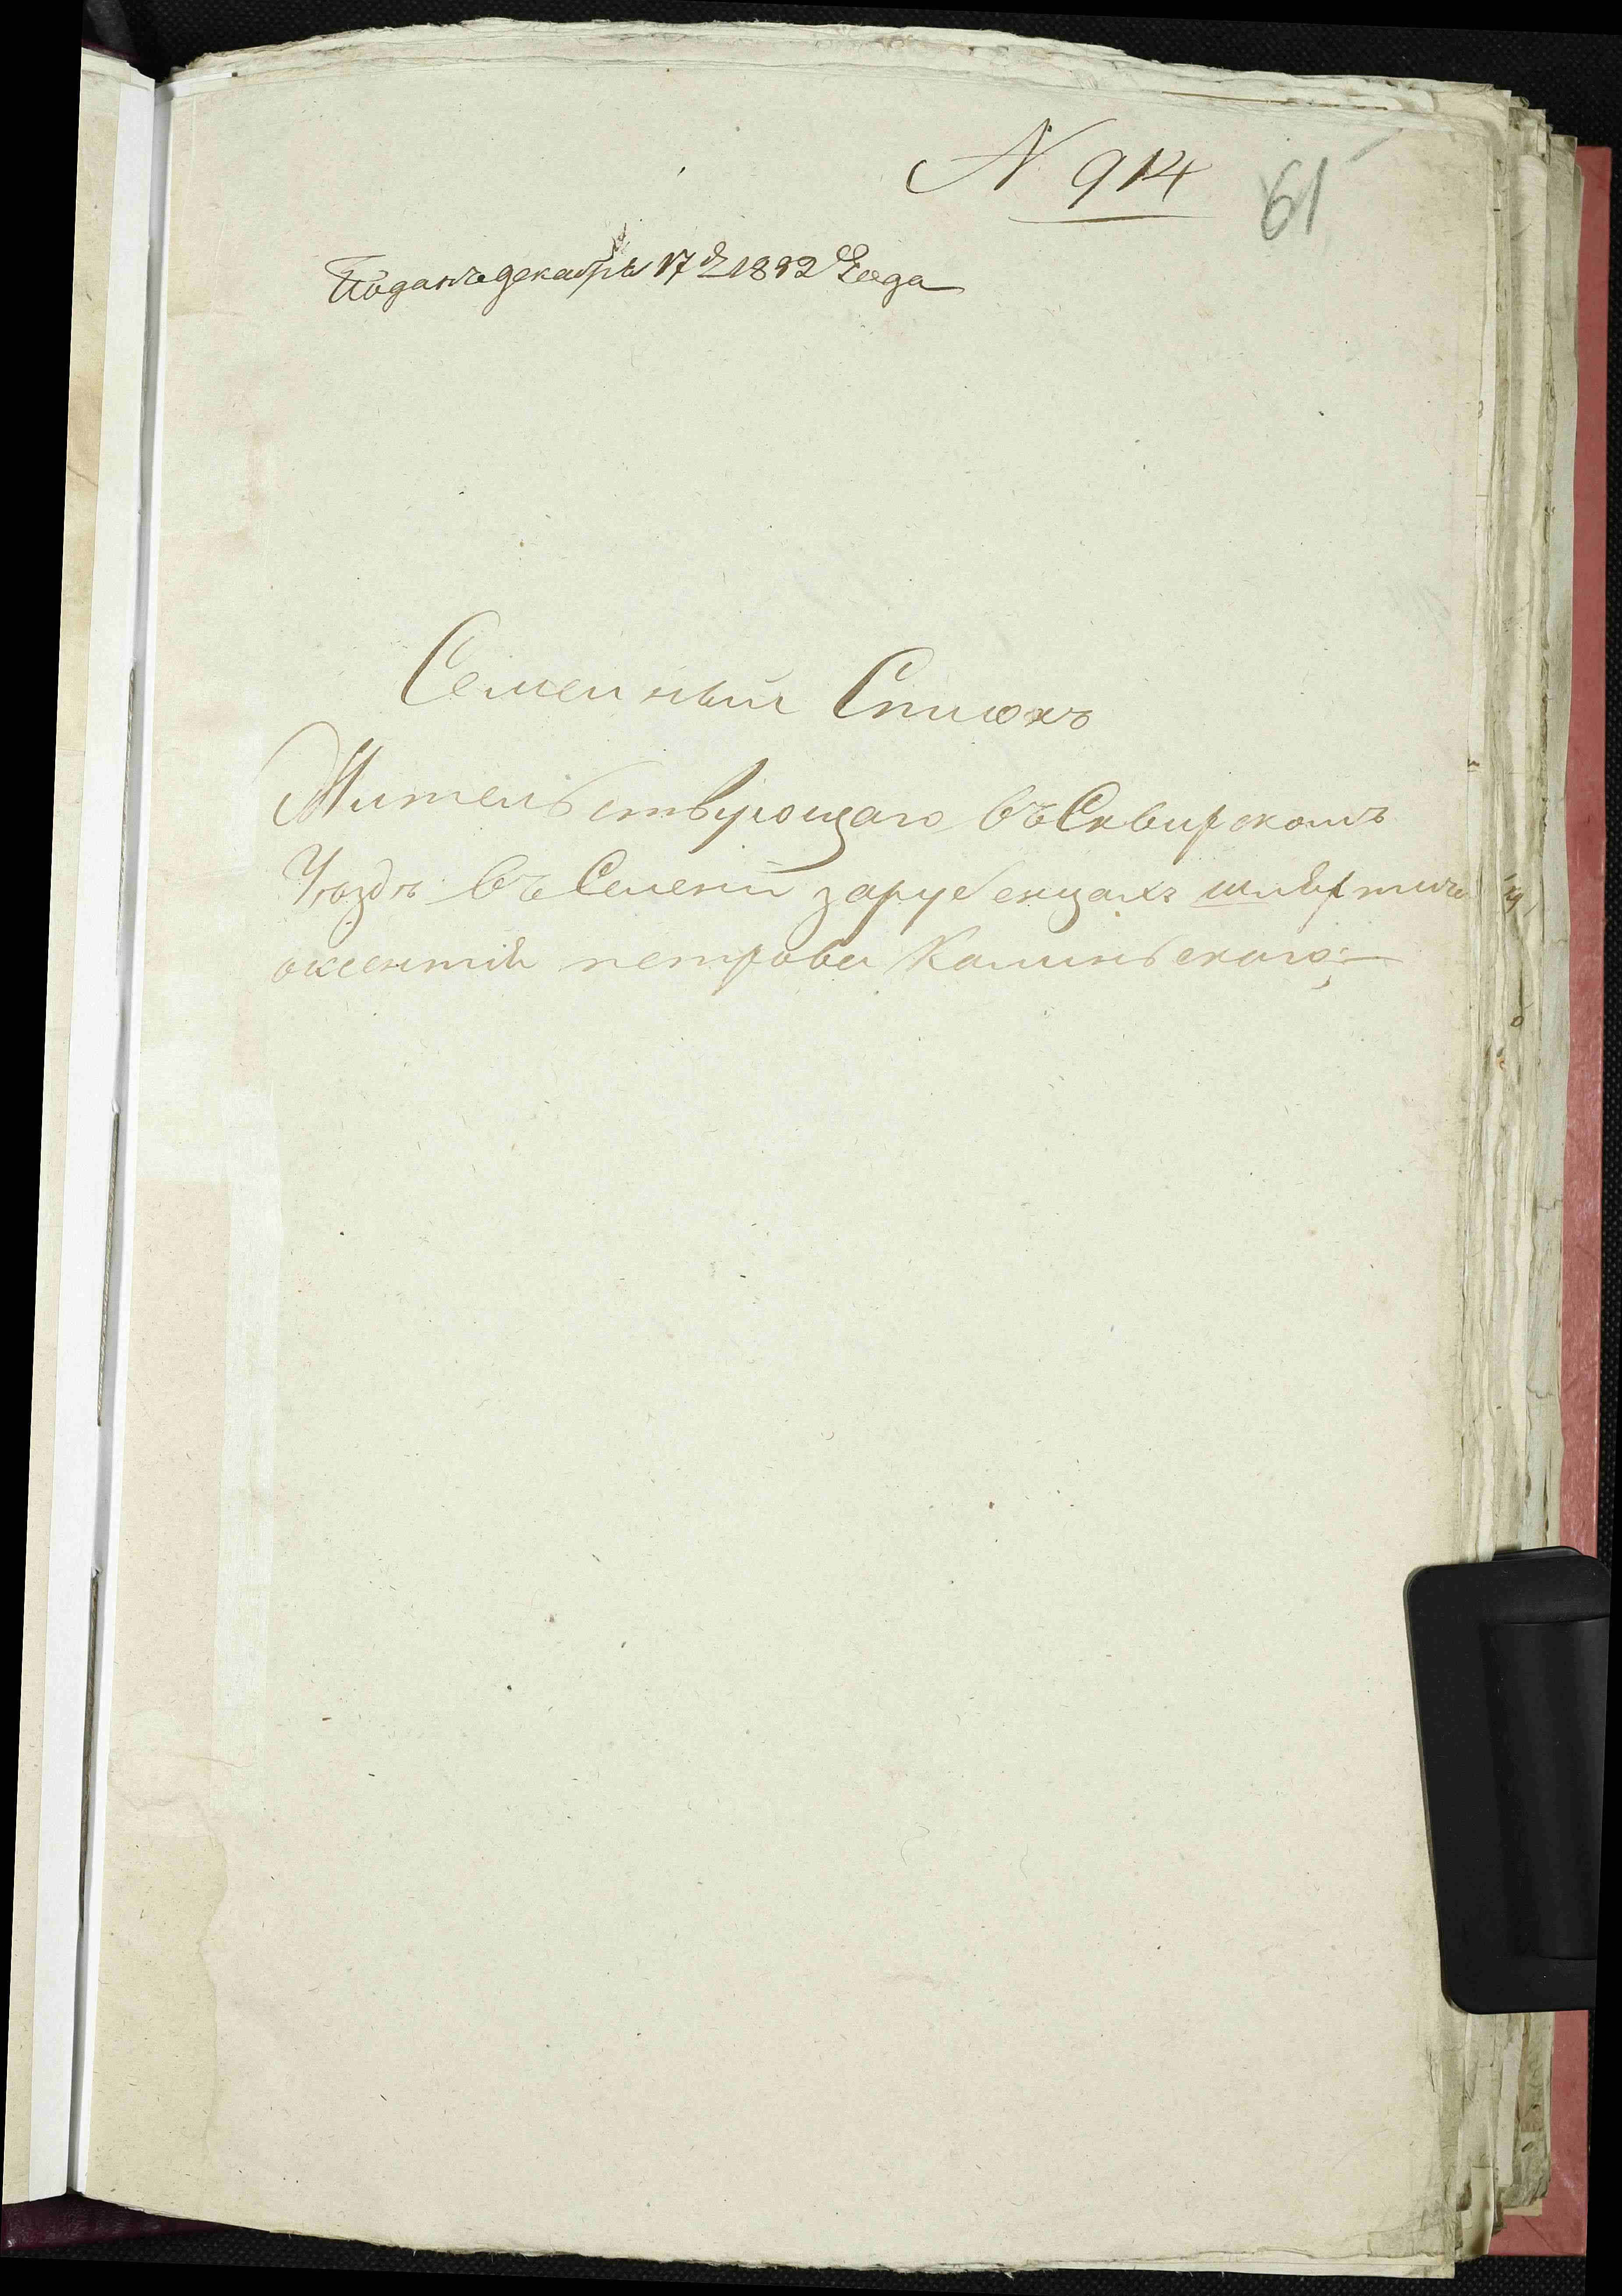 N. 914
61
Поданъ декабря 17 д 1832 года
Семейный Списокъ
Жительствующаго въ Сквирскомъ
Уездѣ въ Селении зарубенцахъ шляхтича
оксентия петрова Калиньского